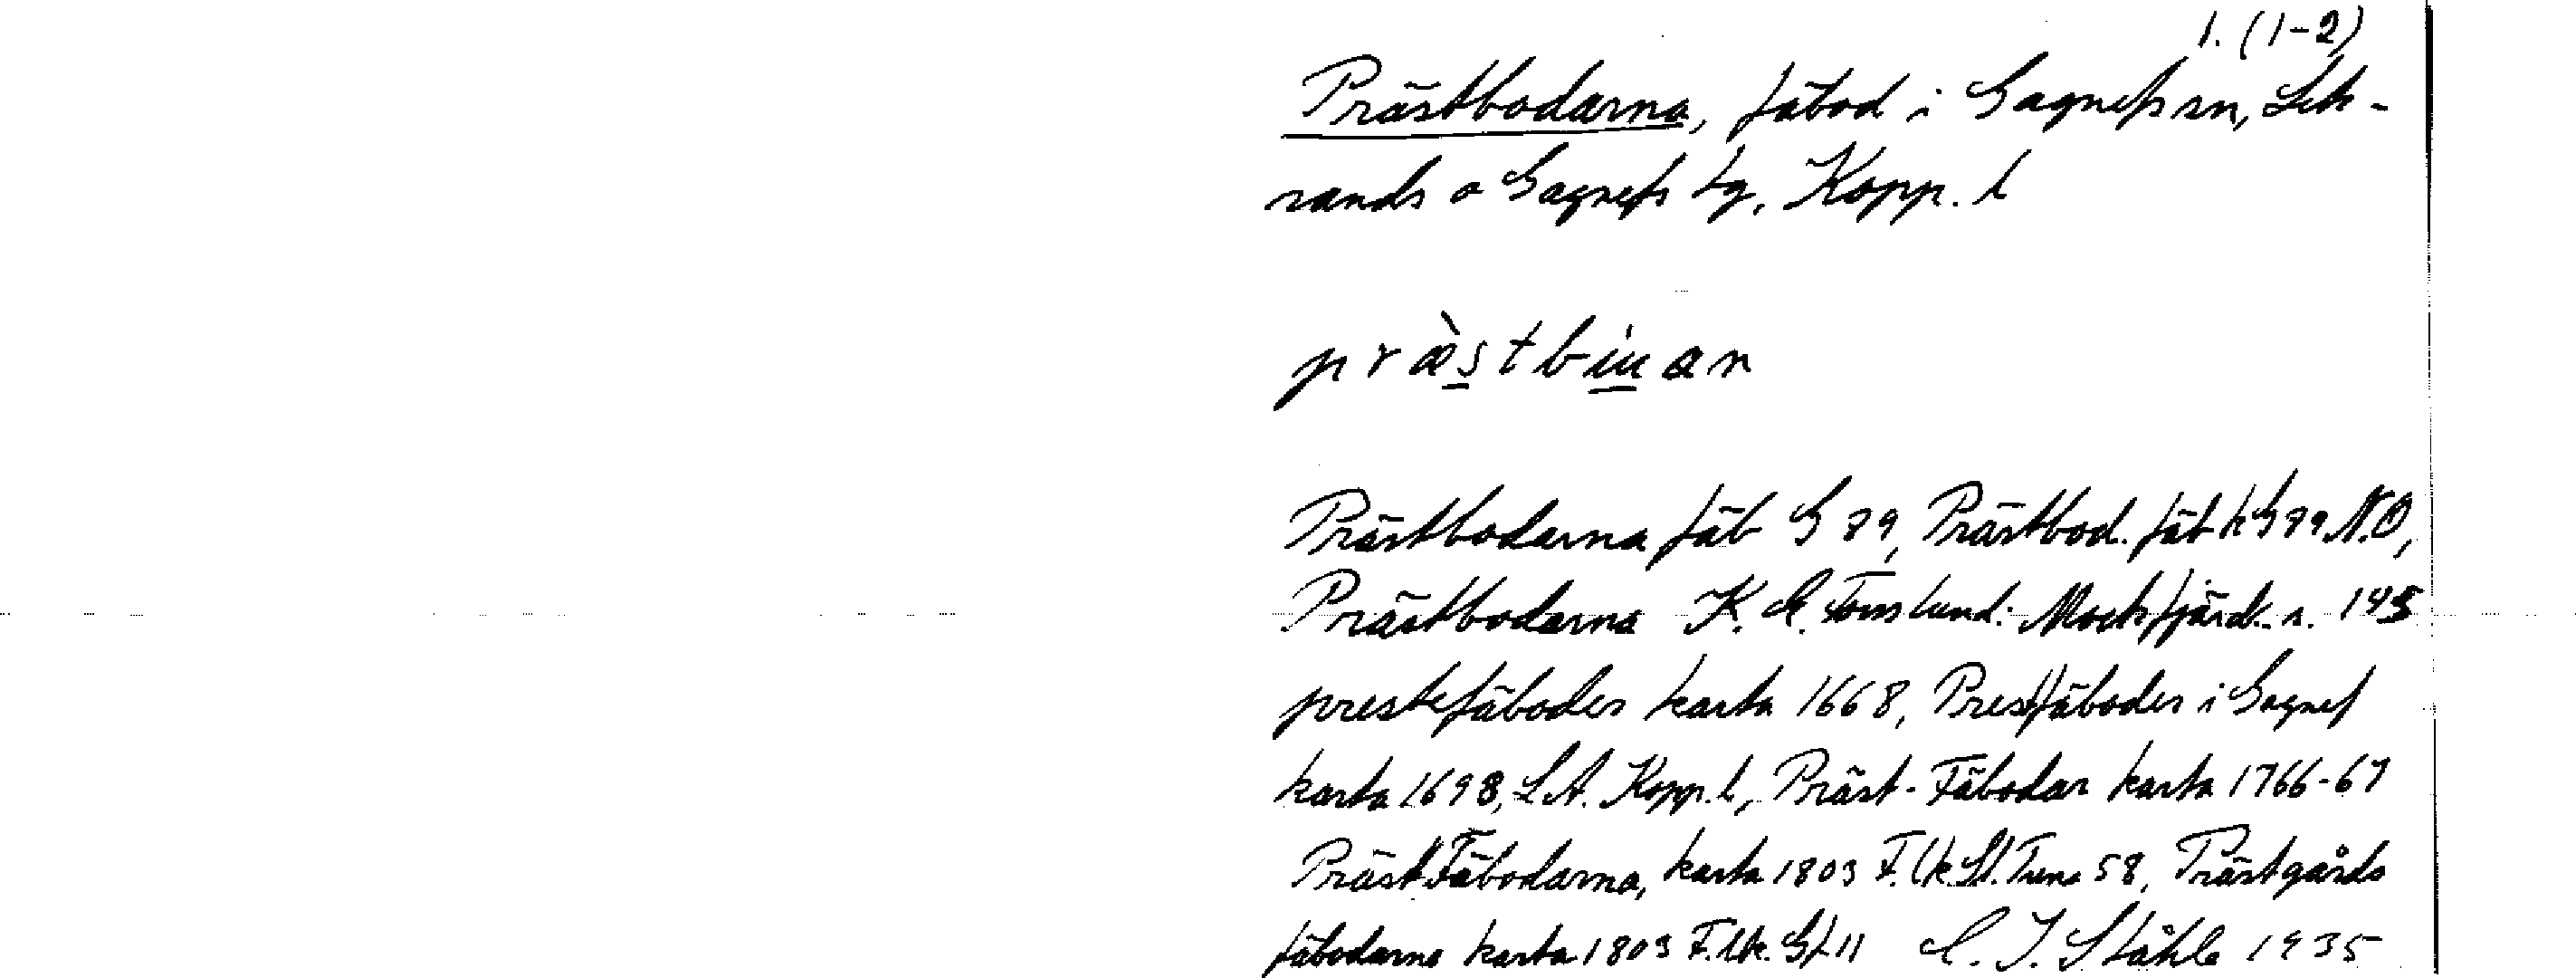 1. (1-2)
Prästbodarna, fäbod i Gagnefs sn, Lek-
sands o Gagnefs tg, Kopp. l
præstbiuan
Prästbodarna fäb G 89, Prästbod. fäb k G 89 N.O,
Prästbodarna K. E. Forslund: Mockfjärd s. 145
prestefäboder karta 1668, Prestfäboder i Gagnef
karta 1698, LA. Kopp. l, Präst-Fäbodar karta 1766-67
Präst Fäbodarna, karta 1803 F. lk. St. Tuna 58, Prästgårds
fäbodarna karta 1803 F. lk. Gf 11 C. I. Ståhle 1935